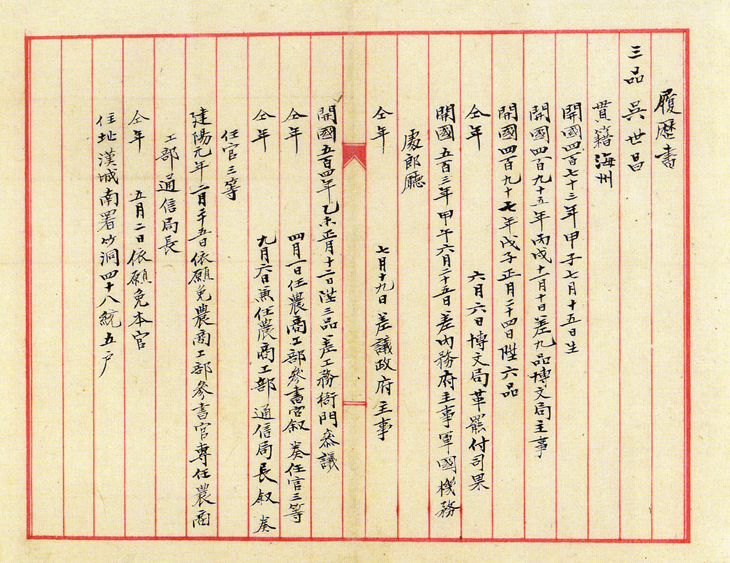 履歷書
三品 吳世昌
貫籍海州
開國四百七十三年甲子七月十五日生
開國四百九十五年丙戌十一月十日差九品博文局主事
開國四百九十七年戊子正月二十四日陞六品
仝年 六月六日博文局革罷付司果
開國五百三年甲午六月二十五日差內務府主事軍國機務
處郞廳
仝年 七月十九日差議政府主事
開國五百四年乙未正月十二日陞三品差工務衙門叅議
仝年 四月一日任農商工部參書官叙奏任官三等
仝年 九月六日兼任農商工部通信局長叙奏
任官三等
建陽元年二月二十五日依願免農商工部參書官專任農商
工部通信局長
仝年 五月二日依願免本官
住址漢城南署竹洞四十八統五戶